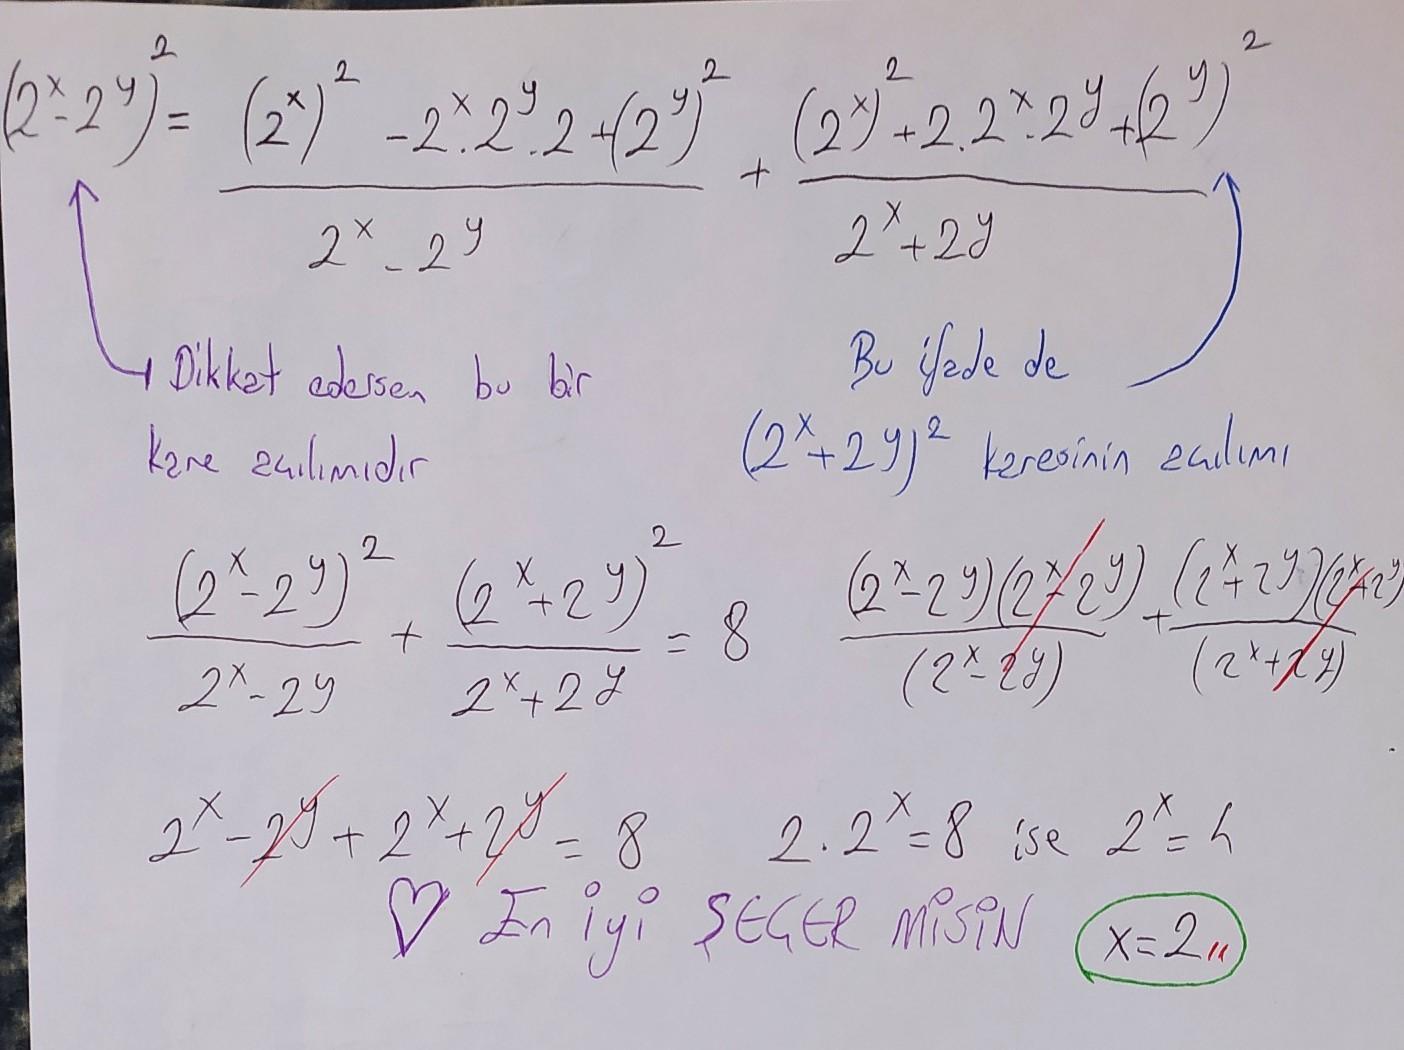 (2^x - 2^y)^2 = ((2^x)^2 - 2^x . 2^y . 2 + (2^y)^2) / (2^x - 2^y) + ((2^x)^2 + 2 . 2^x . 2^y + (2^y)^2) / (2^x + 2^y)
Dikkat edersen bu bir
kare açılımıdır
Bu ifade de
(2^x + 2^y)^2 karesinin açılımı
(2^x - 2^y)^2 / (2^x - 2^y) + (2^x + 2^y)^2 / (2^x + 2^y) = 8
(2^x - 2^y)(2^x - 2^y) / (2^x - 2^y) + (2^x + 2^y)(2^x + 2^y) / (2^x + 2^y)
2^x - 2^y + 2^x + 2^y = 8 2 . 2^x = 8 ise 2^x = 4
♡ En iyi SEÇER MİSİN x = 2,,